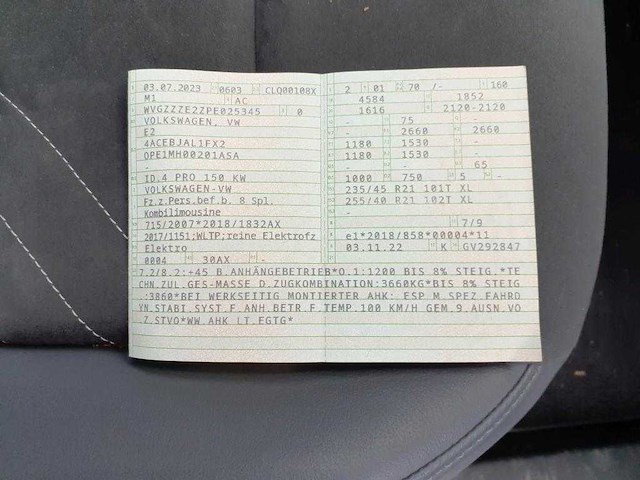 03.07.2023 0603 CLQ00108X
M1 AC
WVGZZZE2ZPE025345 0
VOLKSWAGEN, VW
E2
4ACEBJAL1FX2
OPE1MH00201ASA
-
ID.4 PRO 150 KW
VOLKSWAGEN-VW
Fz.z.Pers.bef.b. 8 Spl.
Kombilimousine
715/2007*2018/1832AX
2017/1151;WLTP;reine Elektrofz
Elektro
0004 30AX -
2 01 70 /- 160
4584 1852
1616 2120-2120
- 75 -
- 2660 2660
1180 1530 -
1180 1530 -
- - 65
1000 750 5 -
235/45 R21 101T XL
255/40 R21 102T XL
-
- 7/9
e1*2018/858*00004*11
03.11.22 K GV292847
7.2/8.2:+45 B.ANHÄNGEBETRIEB*O.1:1200 BIS 8% STEIG.*TE
CHN.ZUL.GES-MASSE D.ZUGKOMBINATION:3660KG*BIS 8% STEIG
.:3860*BEI WERKSEITIG MONTIERTER AHK: ESP M.SPEZ.FAHRD
YN.STABI.SYST.F.ANH.BETR.F.TEMP.100 KM/H GEM.9.AUSN.VO
Z.STVO*WW.AHK LT.EGTG*